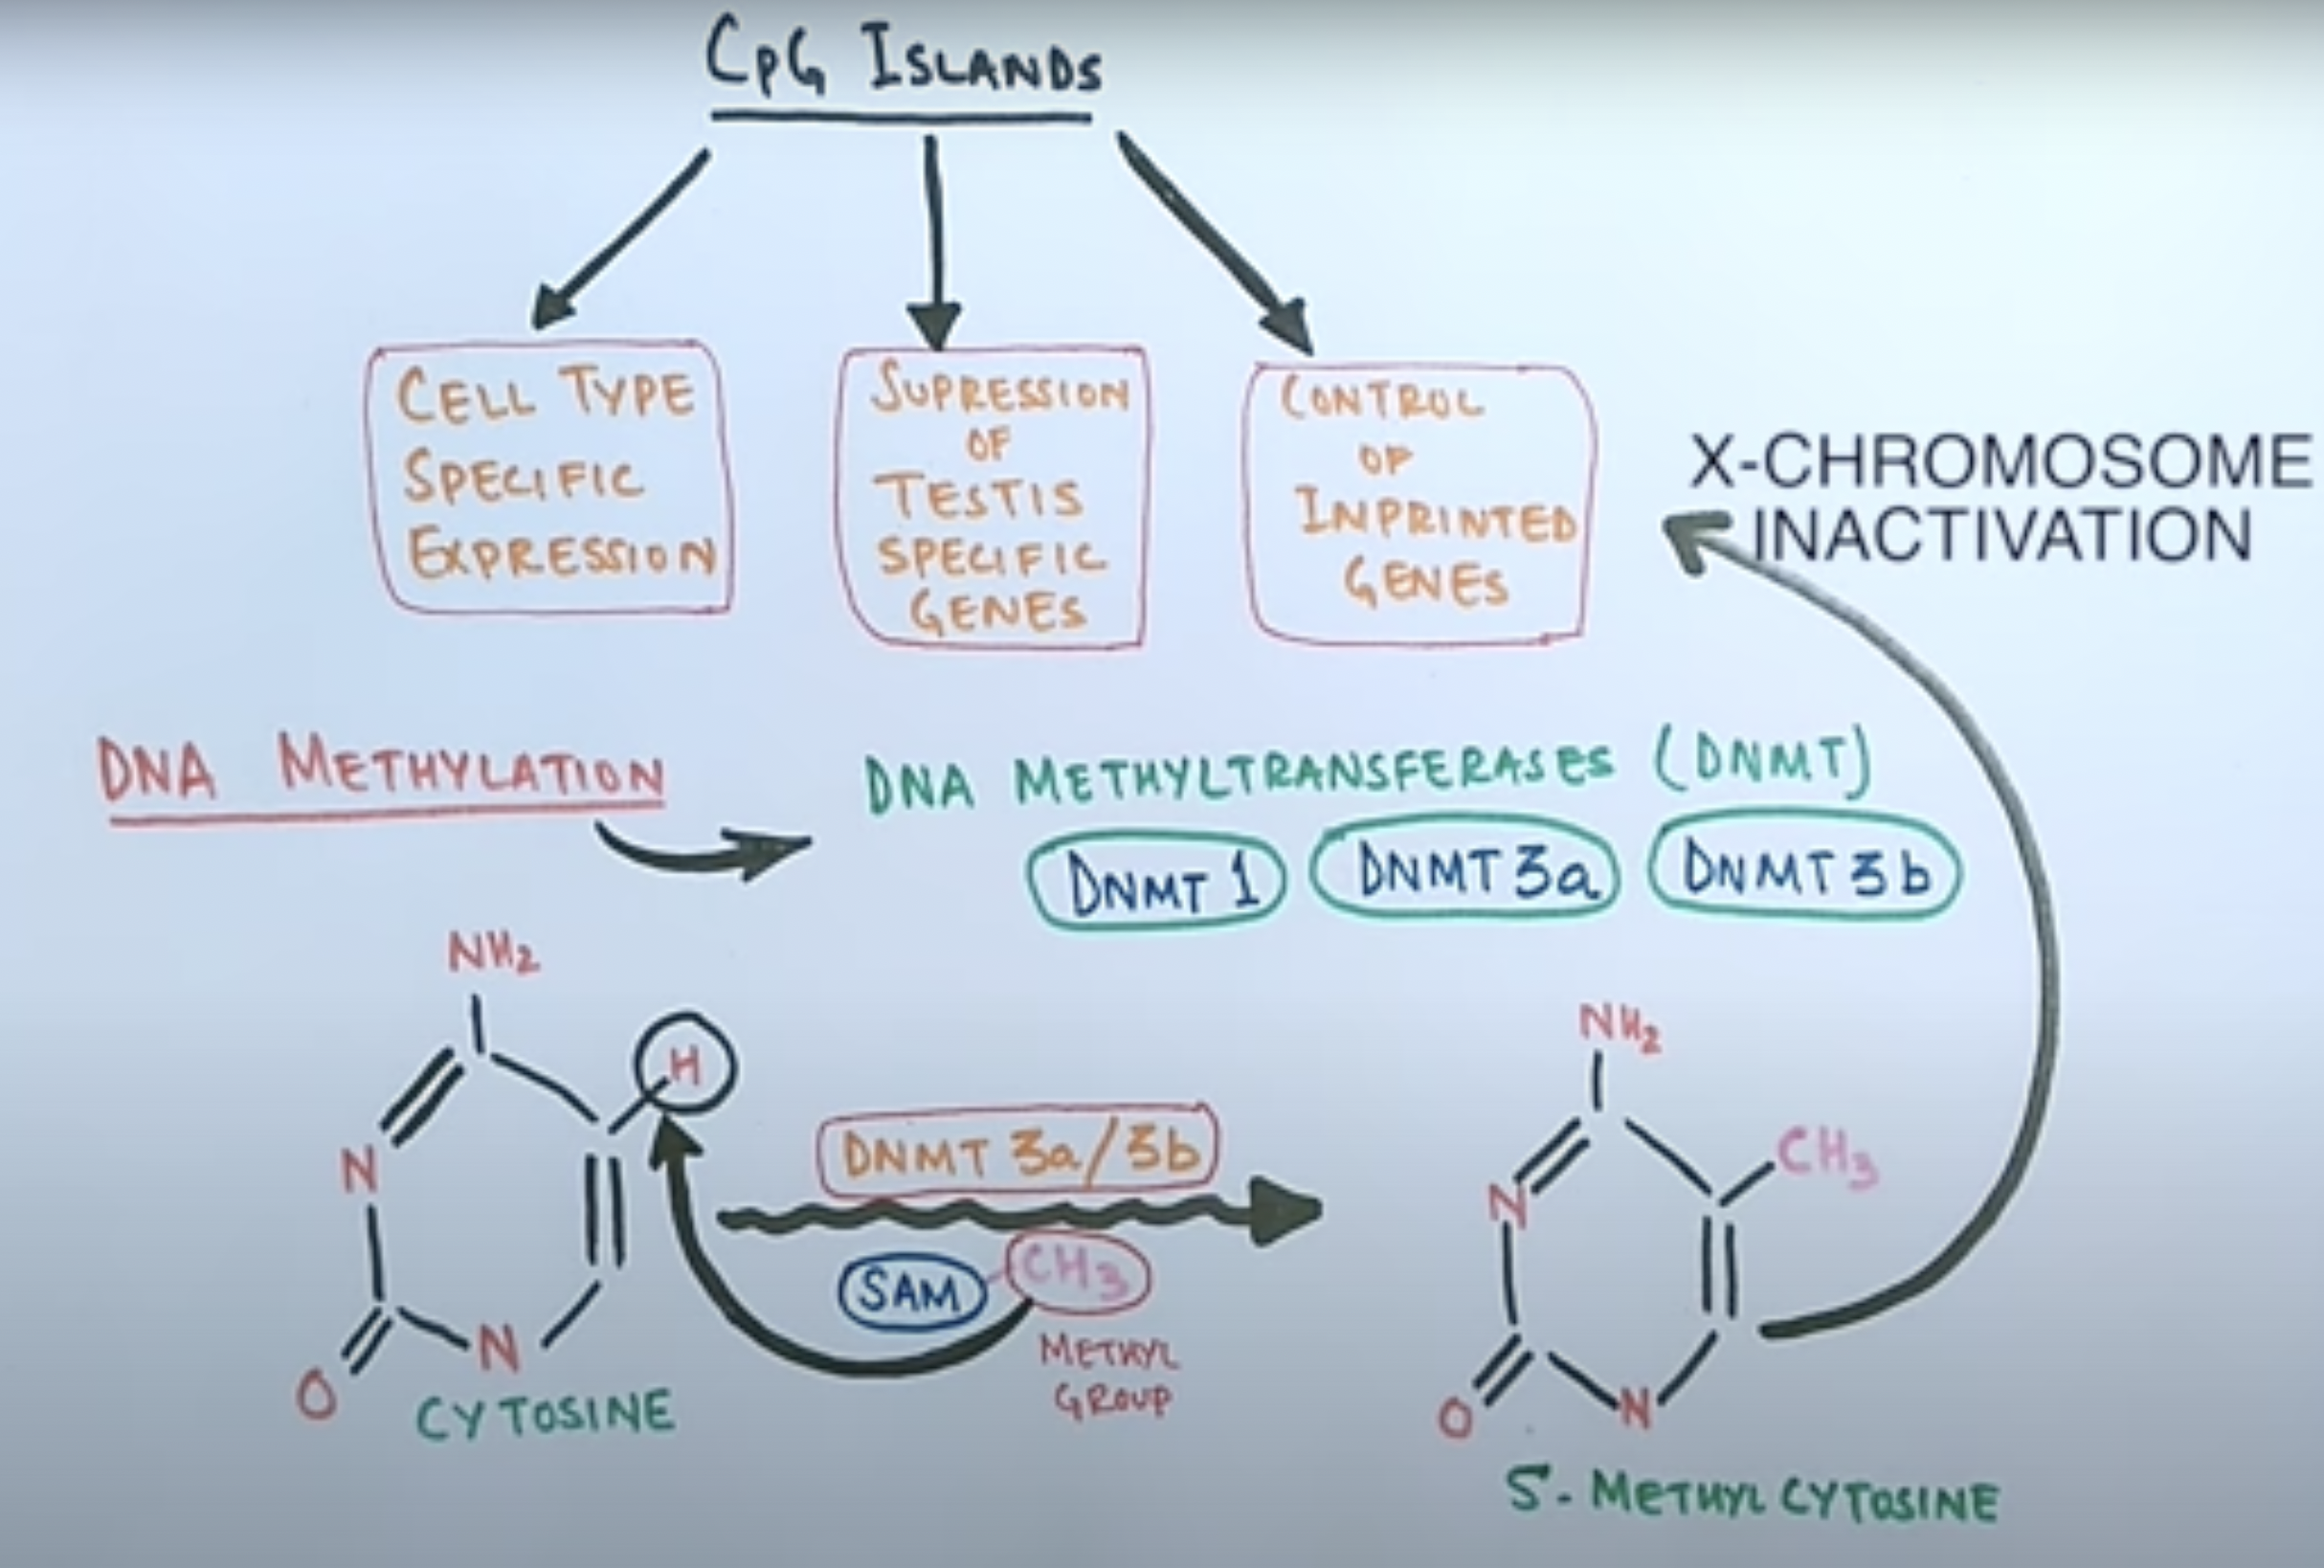 CpG ISLANDS
CELL TYPE
SPECIFIC
EXPRESSION
SUPRESSION
OF
TESTIS
SPECIFIC
GENES
CONTROL
OF
IMPRINTED
GENES
X-CHROMOSOME
INACTIVATION
DNA METHYLATION
DNA METHYLTRANSFERASES (DNMT)
DNMT 1
DNMT 3a
DNMT 3b
NH2
H
N
O
N
CYTOSINE
DNMT 3a/3b
SAM
CH3
METHYL
GROUP
NH2
CH3
N
O
N
5'-METHYLCYTOSINE